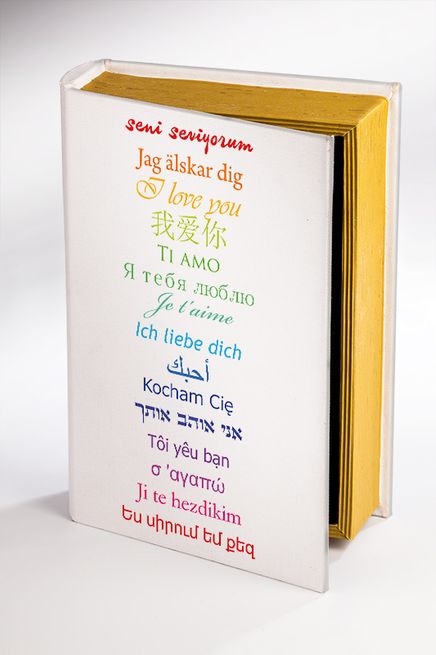 seni seviyorum
Jag älskar dig
I love you
我爱你
TI AMO
Я тебя люблю
Je t'aime
Ich liebe dich
أحبك
Kocham Cię
אני אוהב אותך
Tôi yêu bạn
σ 'αγαπώ
Ji te hezdikim
Ես սիրում եմ քեզ